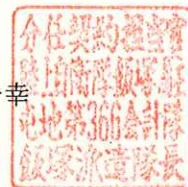 幸
分任契約担当官
陸上自衛隊飯塚駐
屯地第366会計隊
飯塚派遣隊長